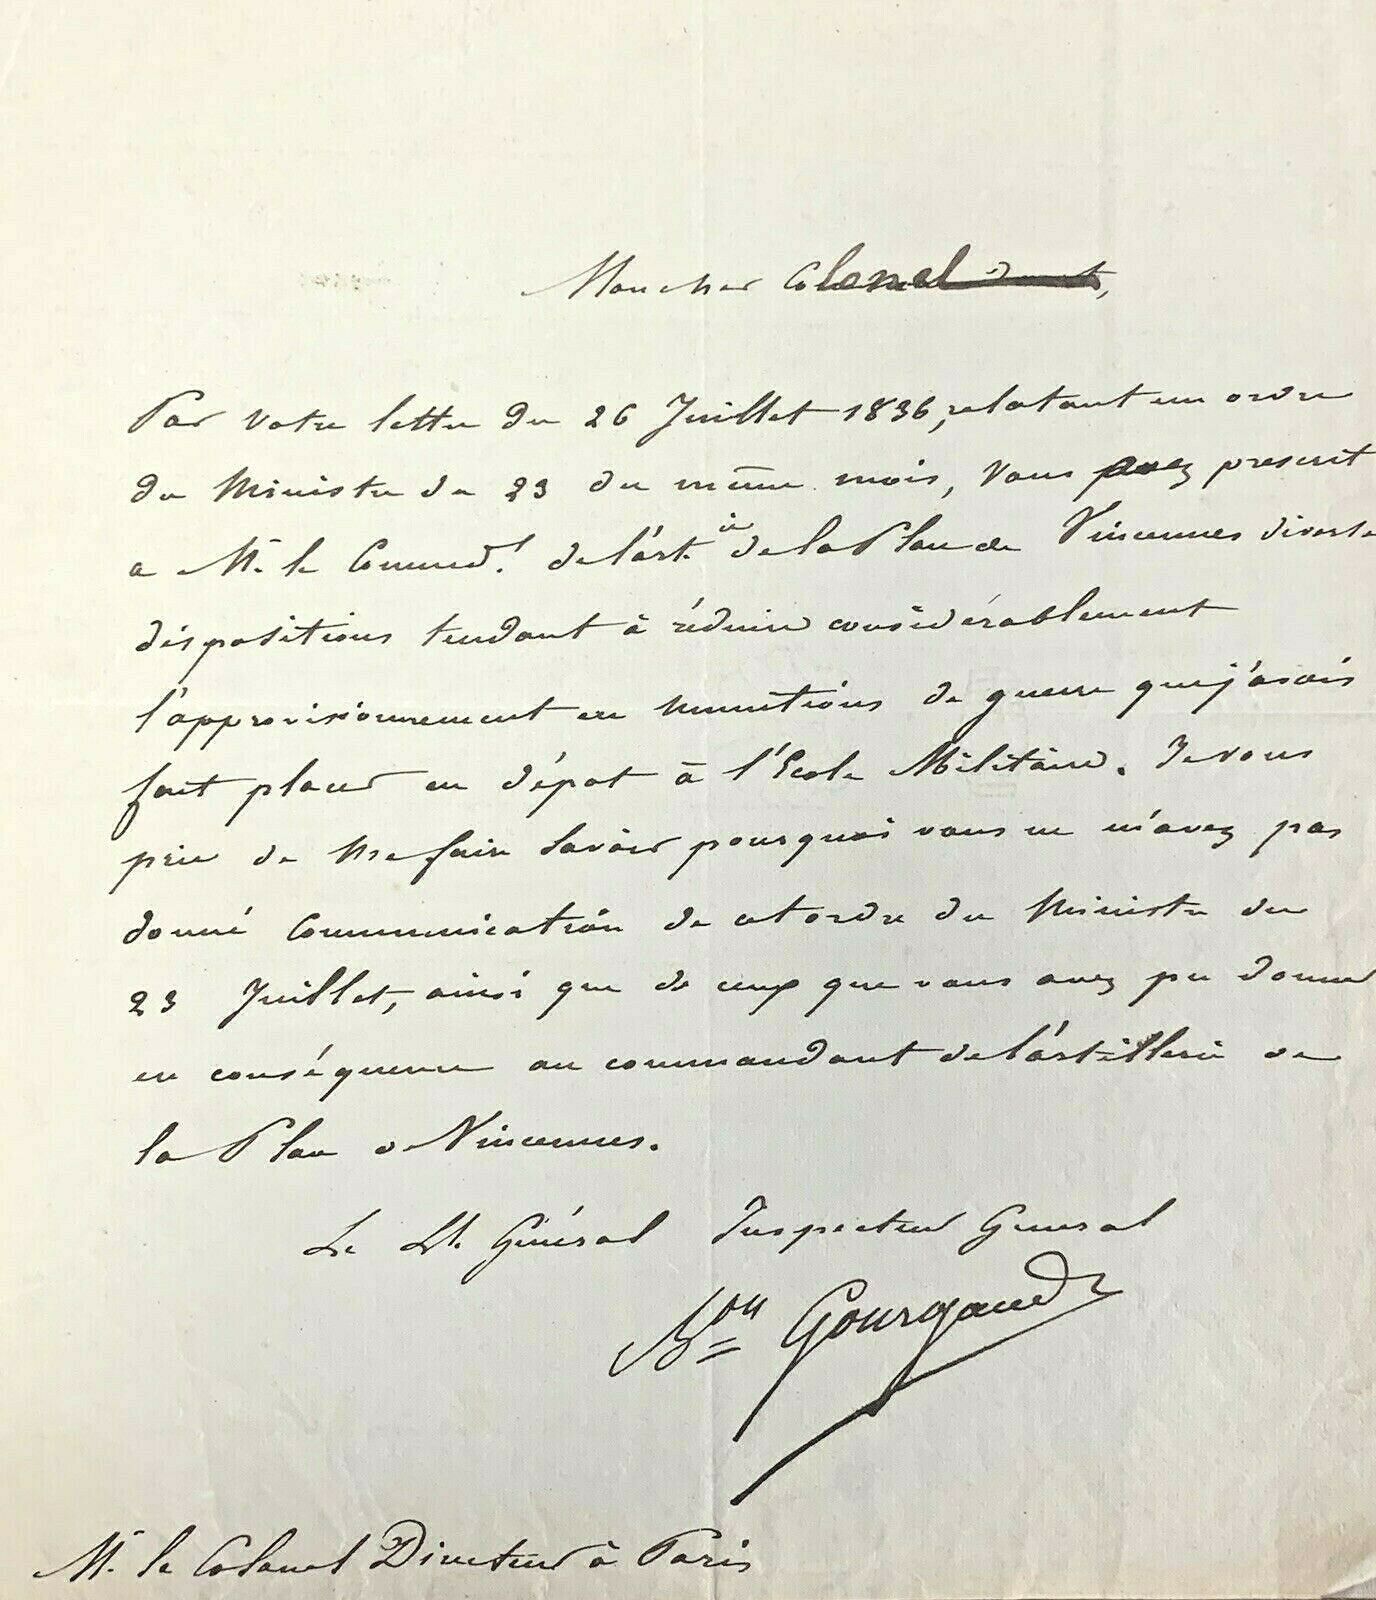 Mon cher Colonel,
Par votre lettre du 26 Juillet 1836, relatant un ordre
du Ministre du 23 du même mois, Vous avez prescrit
a Mr. le Commdt. de l'art.ie de la Place de Vincennes diverses
dispositions tendant à réduire considérablement
l'approvisionnement en munitions de guerre que j'avais
fait placer en dépôt à l'École Militaire. Je vous
prie de me faire savoir pourquoi vous ne m'avez pas
donné communication de cet ordre du Ministre du
23 Juillet, ainsi que de ceux que vous avez pu donner
en conséquence au commandant de l'artillerie de
la Place de Vincennes.
Le Lt. Général Inspecteur Général
Bon Gourgaud
M. le Colonel Directeur à Paris